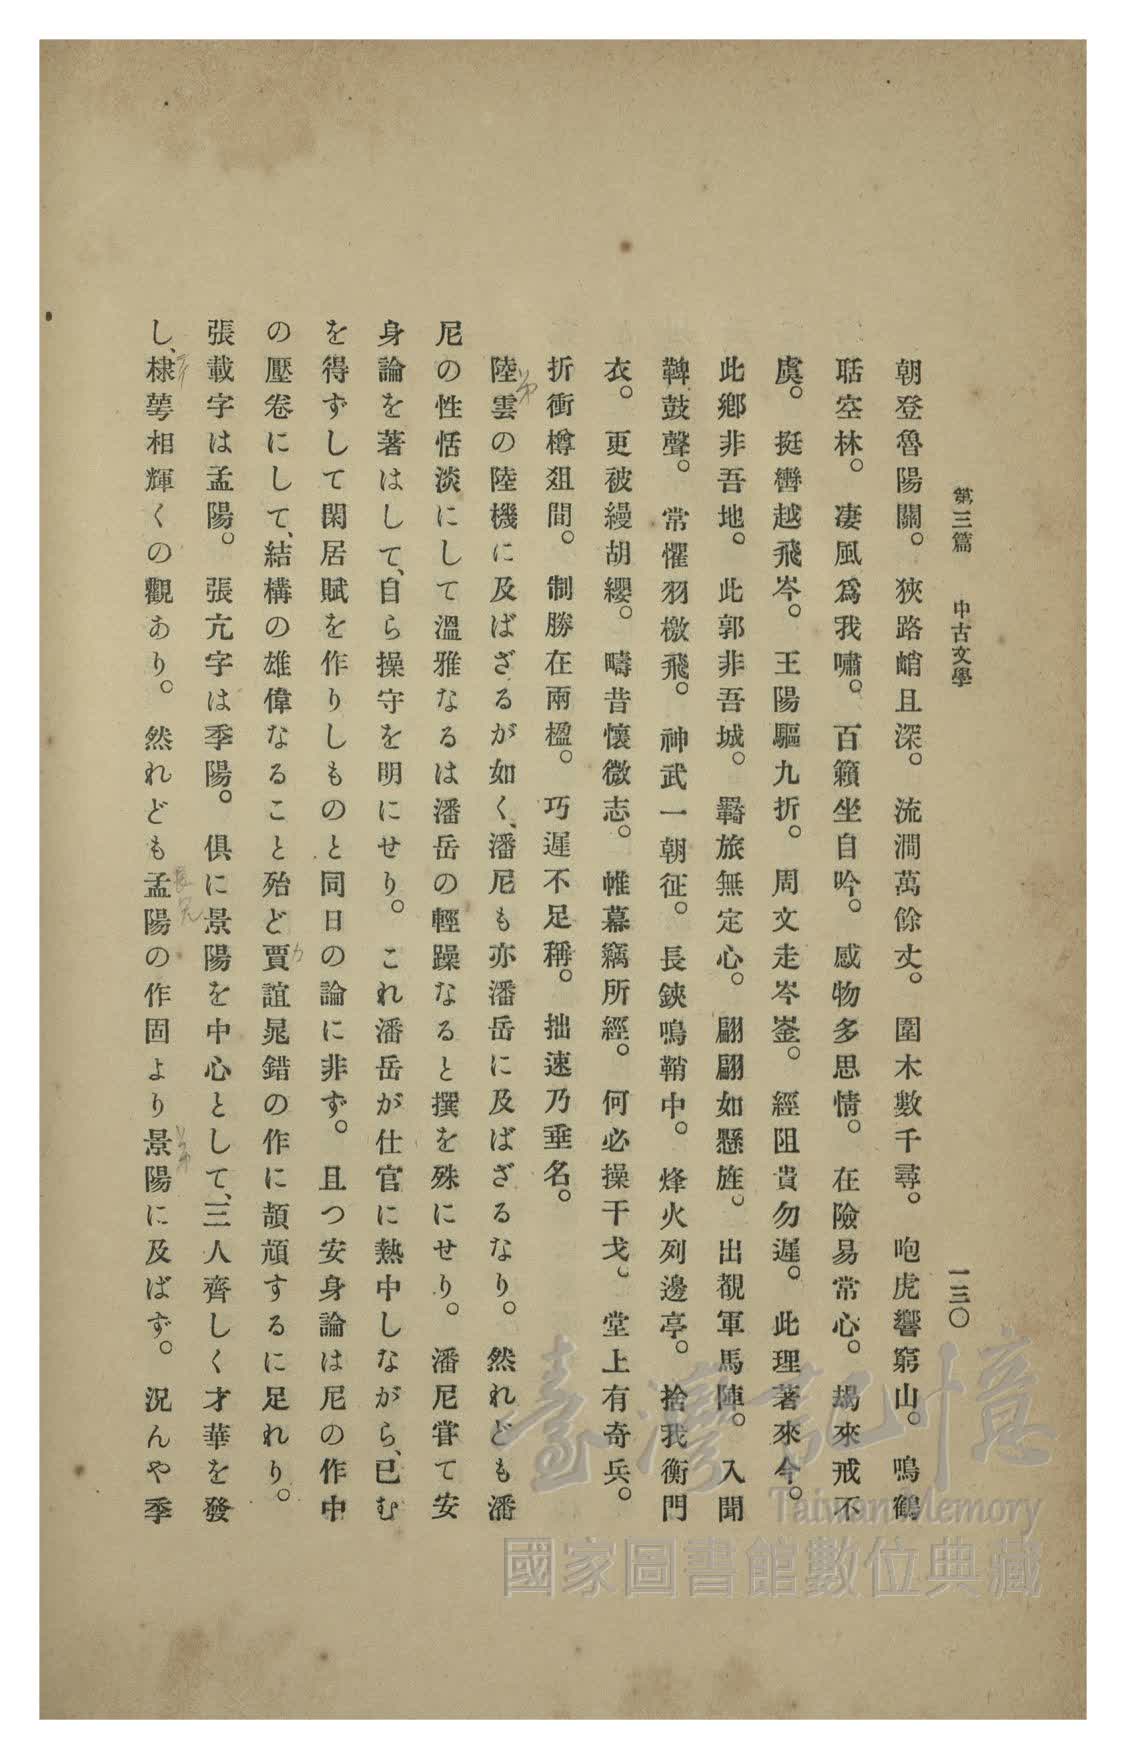 第三篇　中古文學　一三〇
朝登魯陽關。狹路峭且深。流澗萬餘丈。圍木數千尋。咆虎響窮山。鳴鶴
聒空林。凄風爲我嘯。百籟坐自吟。感物多思情。在險易常心。朅來戒不
虞。挺轡越飛岑。王陽驅九折。周文走岑崟。經阻貴勿遲。此理著來今。
此鄕非吾地。此郭非吾城。羇旅無定心。翩翩如懸旌。出覩軍馬陣。入聞
鞞鼓聲。常懼羽檄飛。神武一朝征。長鋏鳴鞘中。烽火列邊亭。捨我衡門
衣。更被縵胡纓。疇昔懷微志。帷幕竊所經。何必操干戈。堂上有奇兵。
折衝樽俎間。制勝在兩楹。巧遲不足稱。拙速乃垂名。
陸雲の陸機に及ばざるが如く、潘尼も亦潘岳に及ばざるなり。然れども潘
尼の性恬淡にして溫雅なるは潘岳の輕躁なると撰を殊にせり。潘尼甞て安
身論を著はして、自ら操守を明にせり。これ潘岳が仕官に熱中しながら、已む
を得ずして閑居賦を作りしものと同日の論に非ず。且つ安身論は尼の作中
の壓卷にして、結構の雄偉なること殆ど賈誼晁錯の作に頡頏するに足れり。
張載字は孟陽。張亢字は季陽。俱に景陽を中心として、三人齊しく才華を發
し、棣萼相輝くの觀あり。然れども孟陽の作固より景陽に及ばず。況んや季
弟
長兄
臺灣記憶
Taiwan Memory
國家圖書館數位典藏